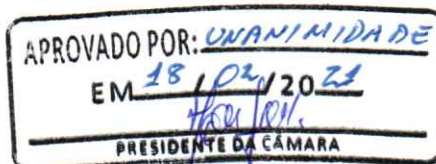 APROVADO POR: UNANIMIDADE
EM 18 / 02 / 2021
PRESIDENTE DA CÂMARA